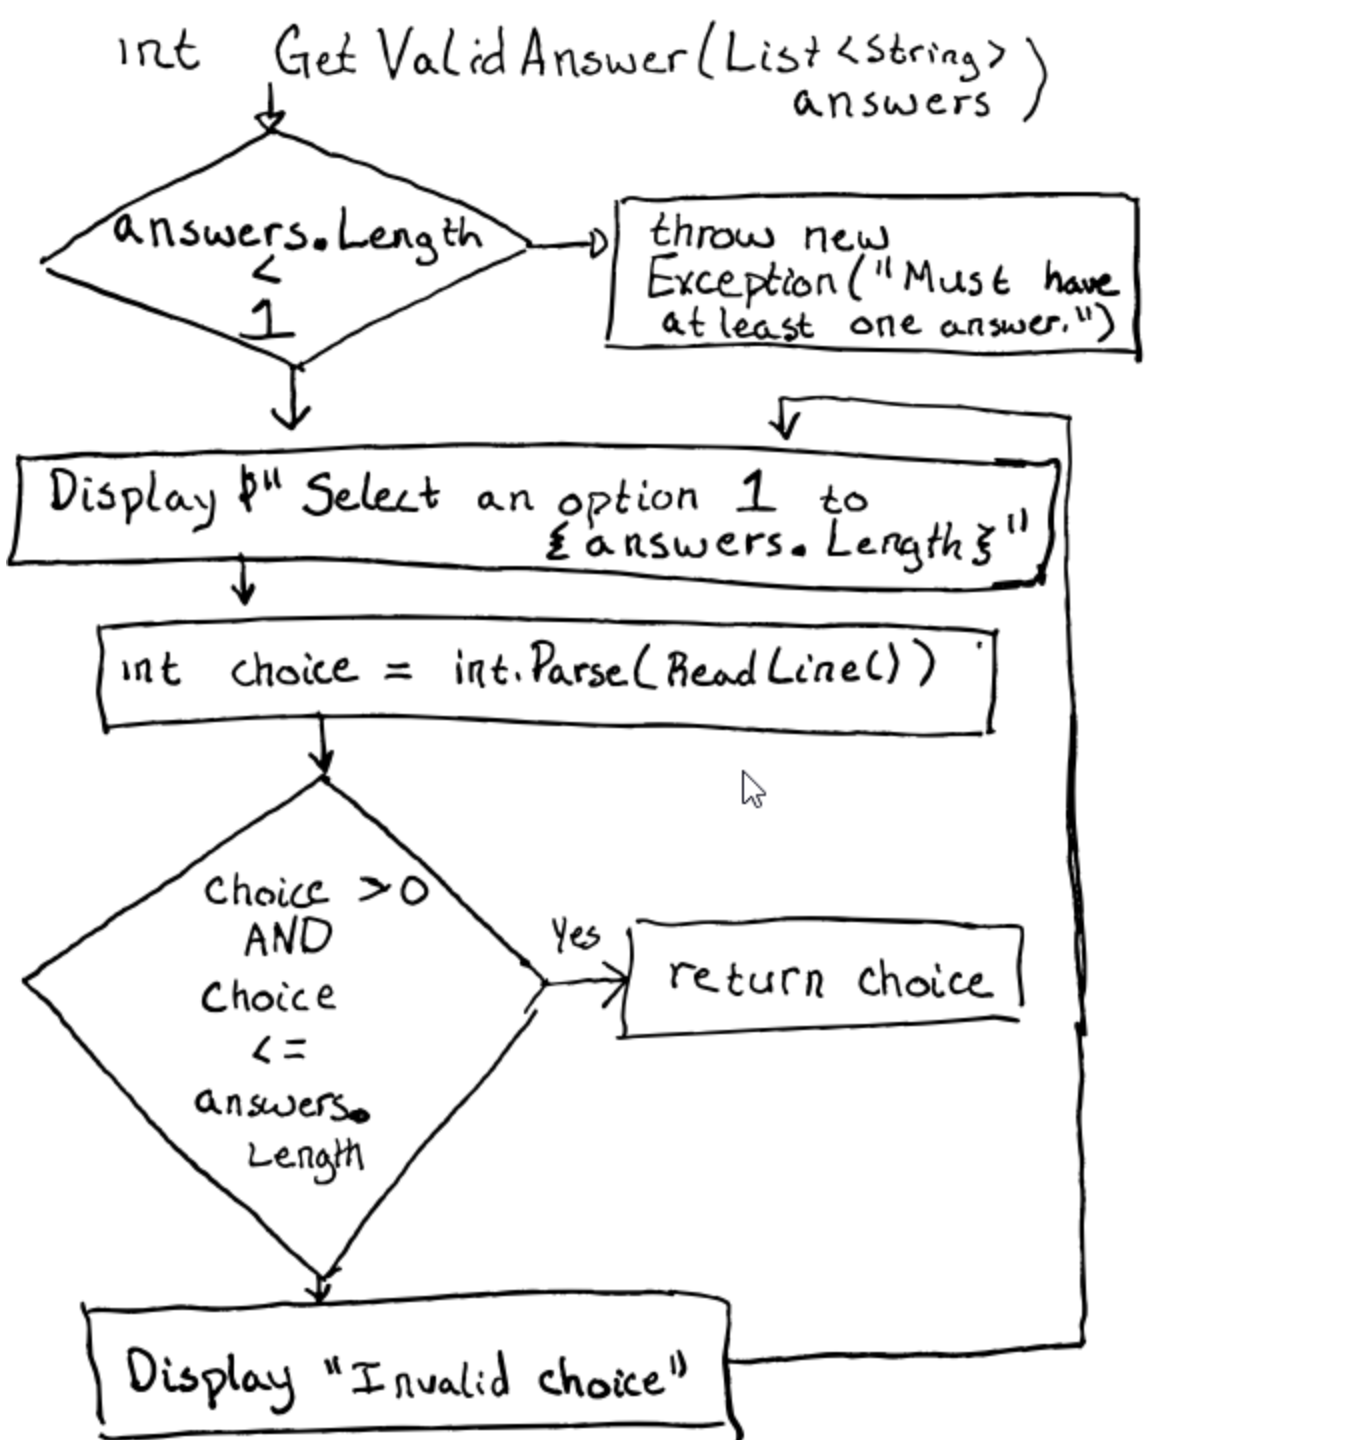 int GetValidAnswer(List<String>
answers)
answers.Length
<
1
throw new
Exception("Must have
at least one answer.")
Display $" Select an option 1 to
{answers.Length}"
int choice = int.Parse(ReadLine())
choice >0
AND
Choice
<=
answers.
Length
Yes
return choice
Display "Invalid choice"